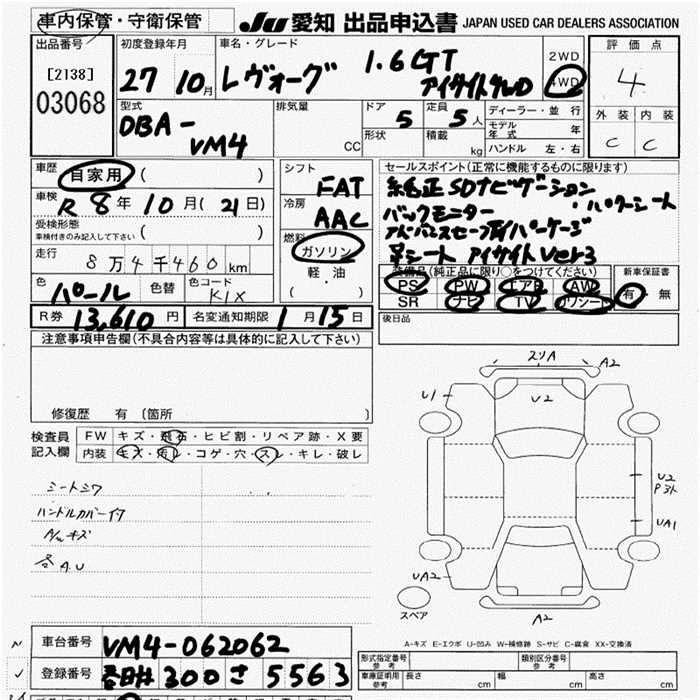 車内保管・守衛保管
JU 愛知 出品申込書 JAPAN USED CAR DEALERS ASSOCIATION
出品番号
[2138]
03068
初度登録年月
27 10月
車名・グレード
レヴォーグ 1.6GT
アイサイト4WD
2WD
4WD
評価点
4
外装 内装
C C
型式
DBA-
VM4
排気量
CC
ドア 5
形状
定員 5人
積載 kg
ディーラー・並行
モデル年式 年
ハンドル 左・右
車歴 自家用 ( )
車検 R8年10月(21日)
受検形態
車検付きのみ記入して下さい ( )
走行 8万4千460km
色 パール 色替 色コード K1X
シフト FAT
冷房 AAC
燃料 ガソリン
軽・油
( ・ )
セールスポイント(正常に機能するものに限ります)
純正SDナビゲーション
バックモニター ・パワーシート
アドバンスセーフティパッケージ
革シート アイサイトver3
装備品(純正品に限り○をつけてください)
PS PW エアB AW
SR ナビ TV カワシート
新車保証書
有・無
R券 13,610円 名変通知期限 1月15日
後日品
注意事項申告欄(不具合内容等は具体的に記入して下さい)
修復歴 有 〔箇所
検査員記入欄
FW キズ・飛石・ヒビ割・リペア跡・X要
内装 キズ・汚レ・コゲ・穴・スレ・キレ・破レ
シートシワ
ハンドルカバーイタ
A/wキズ
各A.U
スリA A2
U1 U2
U2
Pヨト
UA1
UA2
スペア
A2
A-キズ E-エクボ U-凹み W-補修跡 S-サビ C-腐食 XX-交換済
車台番号 VM4-062062
登録番号 春日井300さ5563
形式指定番号
参考
類別区分番号
参考
車庫証明用
参考
長さ cm 幅 cm 高さ cm